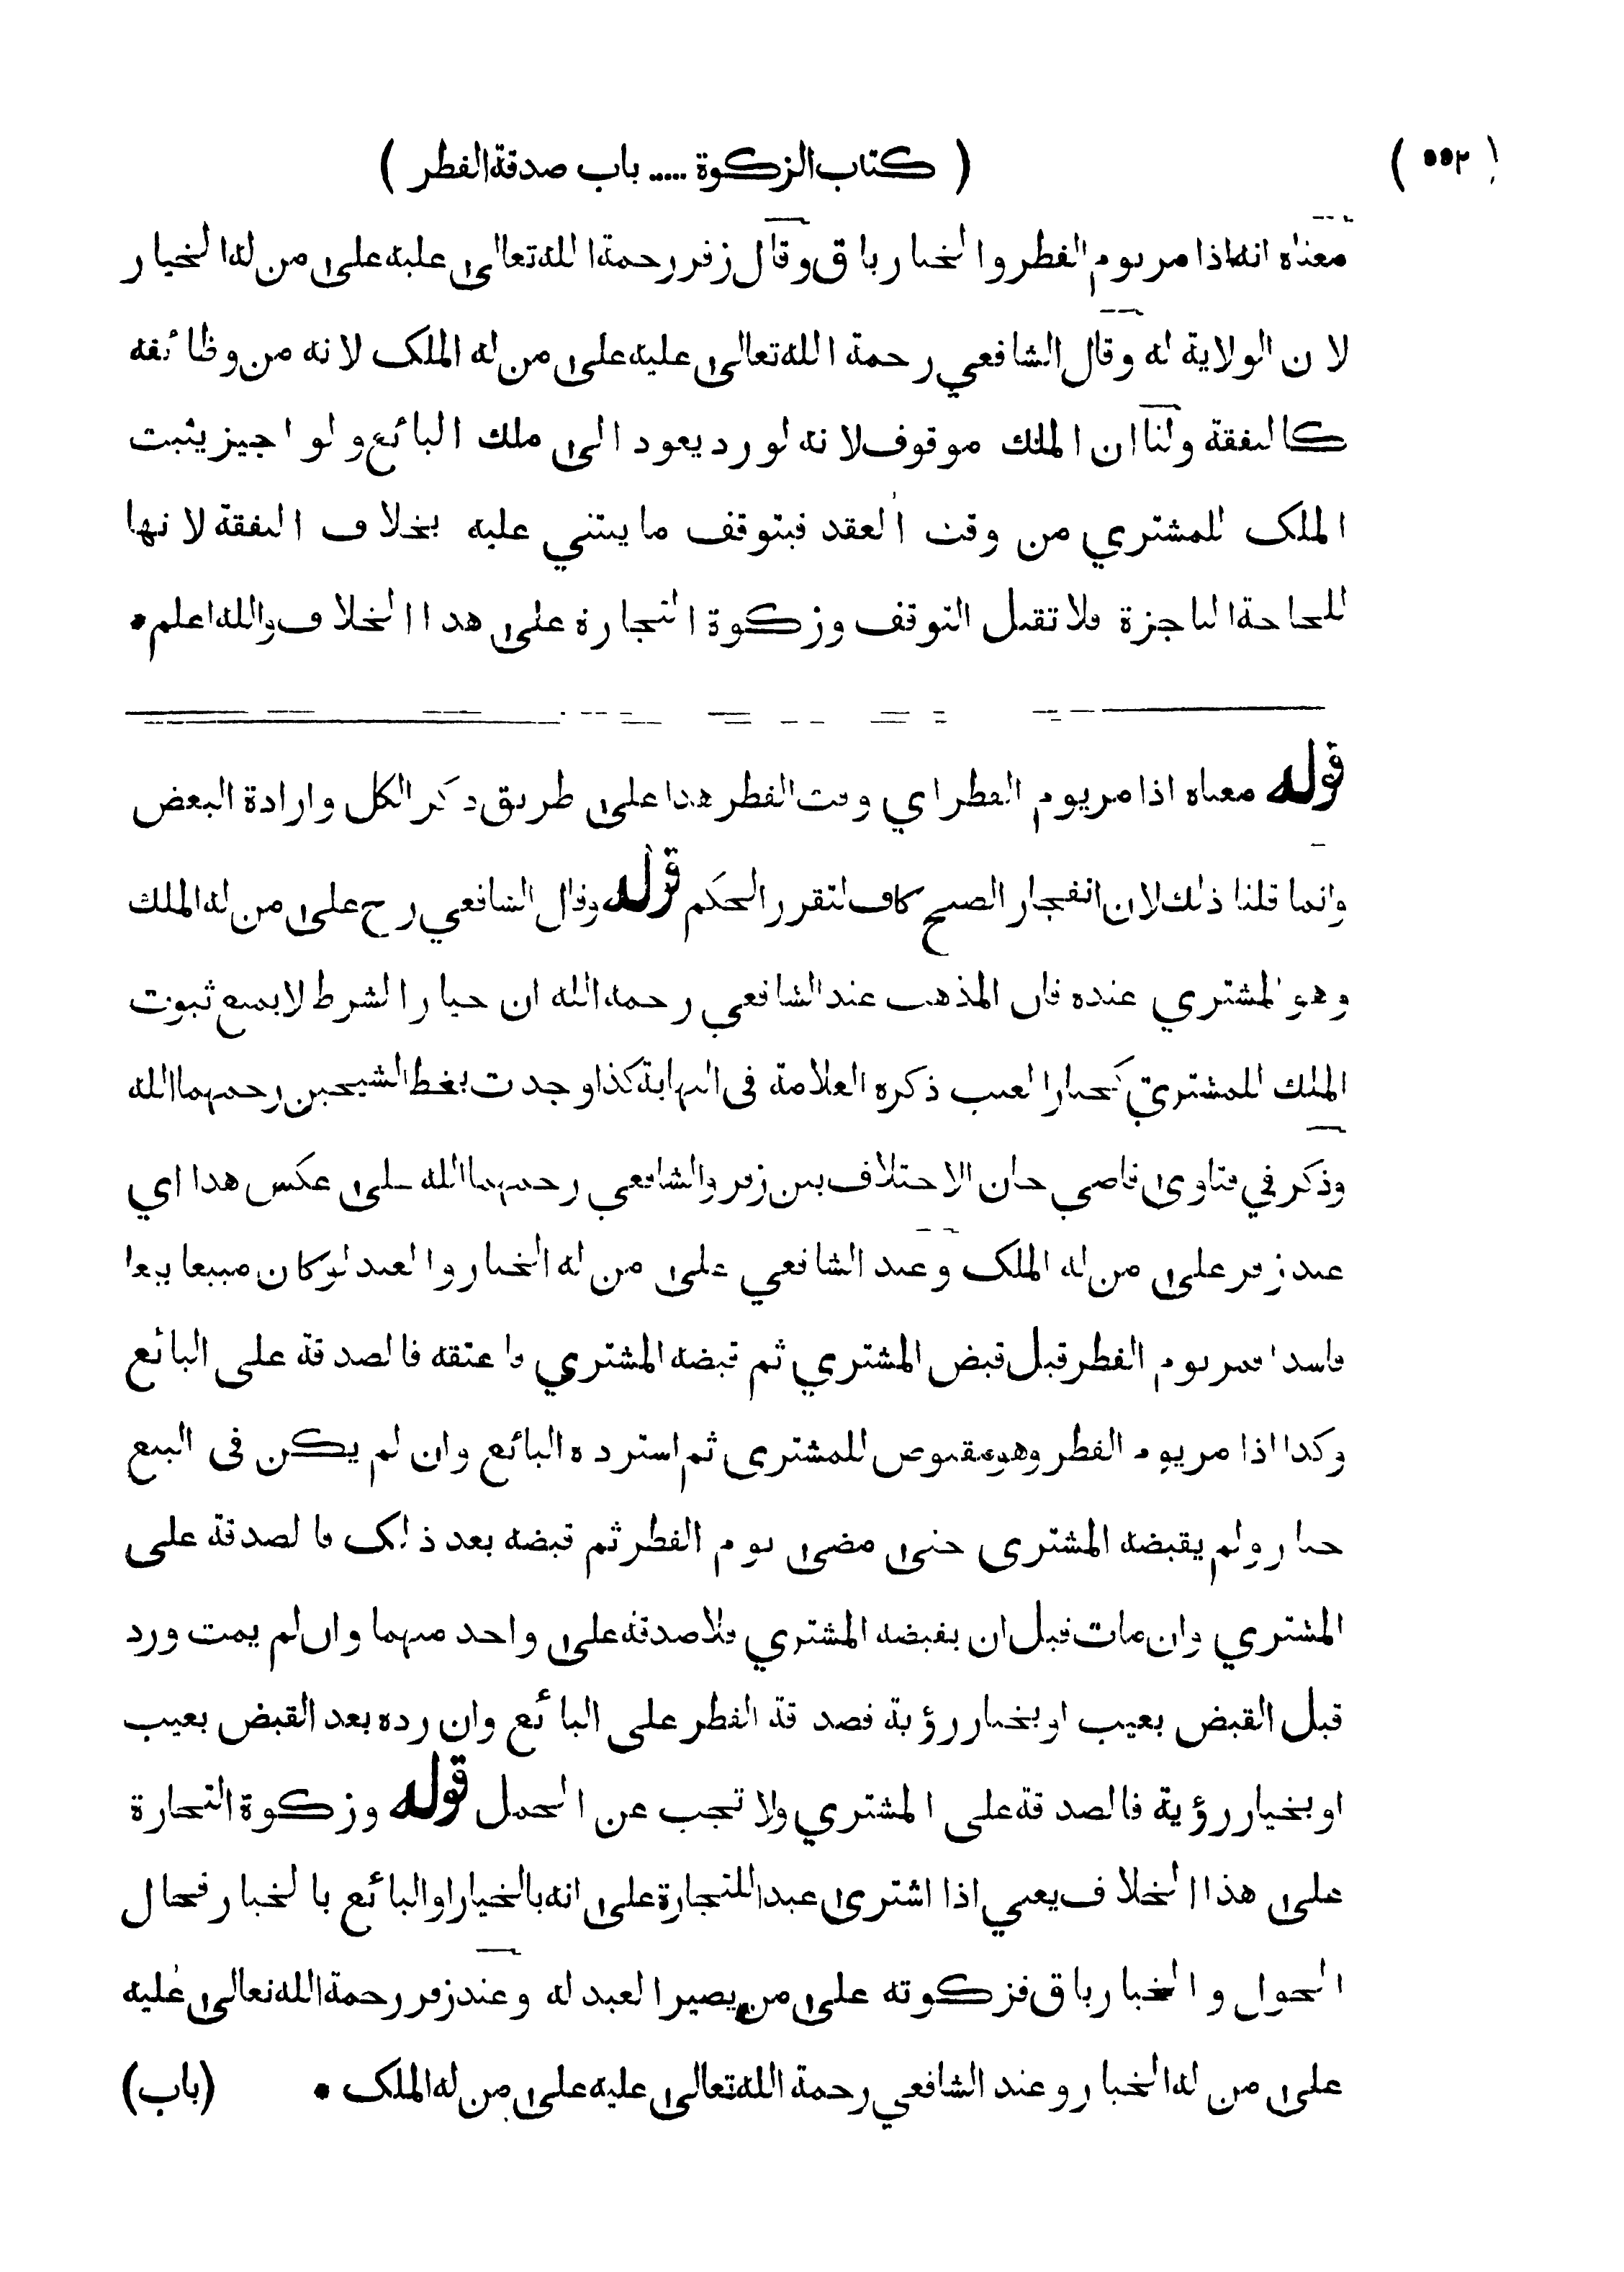 ( ٥٥٢ )
( كتاب الزكوة ..... باب صدقة الفطر )
معناه انه اذا مر يوم الفطر والخيار باق وقال زفر رحمة الله تعالى عليه على من له الخيار
لان الولاية له وقال الشافعي رحمة الله تعالى عليه على من له الملك لانه من وظائفه
كالنفقة ولنا ان الملك موقوف لانه لو رد يعود الى ملك البائع ولو اجيز يثبت
الملك للمشتري من وقت العقد فيتوقف ما يبتني عليه بخلاف النفقة لانها
للحاجة الناجزة فلا تقبل التوقف وزكوة التجارة على هذا الخلاف والله اعلم •
قوله معناه اذا مر يوم الفطر اي وقت الفطر هذا على طريق ذكر الكل وارادة البعض
وانما قلنا ذلك لان انفجار الصبح كاف لتقرر الحكم قوله وقال الشافعي رح على من له الملك
وهو المشتري عنده فان المذهب عند الشافعي رحمه الله ان خيار الشرط لا يمنع ثبوت
الملك للمشتري كخيار العيب ذكره العلامة في النهاية كذا وجدت بخط الشيخين رحمهما الله
وذكر في فتاوى قاضي خان الاختلاف بين زفر والشافعي رحمهما الله على عكس هذا اي
عند زفر على من له الملك وعند الشافعي على من له الخيار والعبد لو كان مبيعا بيعا
فاسدا فمر يوم الفطر قبل قبض المشتري ثم قبضه المشتري فاعتقه فالصدقة على البائع
وكذا اذا مر يوم الفطر وهو مقبوض للمشتري ثم استرده البائع وان لم يكن في البيع
خيار ولم يقبضه المشتري حتى مضى يوم الفطر ثم قبضه بعد ذلك فالصدقة على
المشتري وان مات قبل ان يقبضه المشتري فلا صدقة على واحد منهما وان لم يمت ورد
قبل القبض بعيب او بخيار رؤية فصدقة الفطر على البائع وان رده بعد القبض بعيب
او بخيار رؤية فالصدقة على المشتري ولا تجب عن الحمل قوله وزكوة التجارة
على هذا الخلاف يعني اذا اشترى عبدا للتجارة على انه بالخيار او البائع بالخيار فحال
الحول والخيار باق فزكوته على من يصير العبد له وعند زفر رحمة الله تعالى عليه
على من له الخيار وعند الشافعي رحمة الله تعالى عليه على من له الملك • (باب)